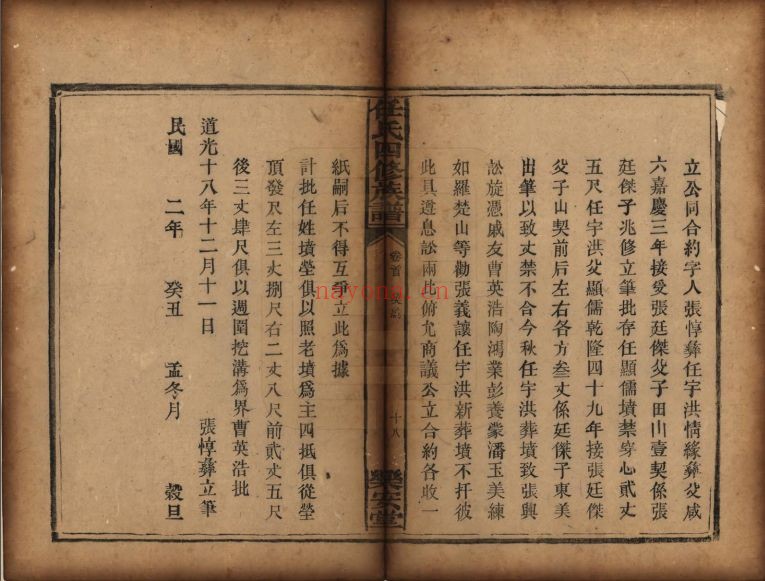 立公同合約字人張惇彝任宇洪情緣彝父咸
六嘉慶三年接受張廷傑父子田山壹契係張
廷傑子兆修立筆批存任顯儒墳禁穿心貳丈
五尺任宇洪父顯儒乾隆四十九年接張廷傑
父子山契前后左右各方叁丈係廷傑子東美
出筆以致丈禁不合今秋任宇洪葬墳致張興
訟旋憑戚友曹英浩陶鴻業彭養蒙潘玉美練
如羅楚山等勸張義讓任宇洪新葬墳不扦彼
此具遵息訟兩比俯允商議公立合約各收一
任氏四修族譜
卷首
十八
樂安堂
紙嗣后不得互爭立此爲據
計批任姓墳塋俱以照老墳爲主四抵俱從塋
頂發尺左三丈捌尺右二丈八尺前貳丈五尺
後三丈肆尺俱以週圍挖溝爲界曹英浩批
道光十八年十二月十一日 張惇彝立筆
民國 二年 癸丑 孟冬月 穀旦
nayona.cn